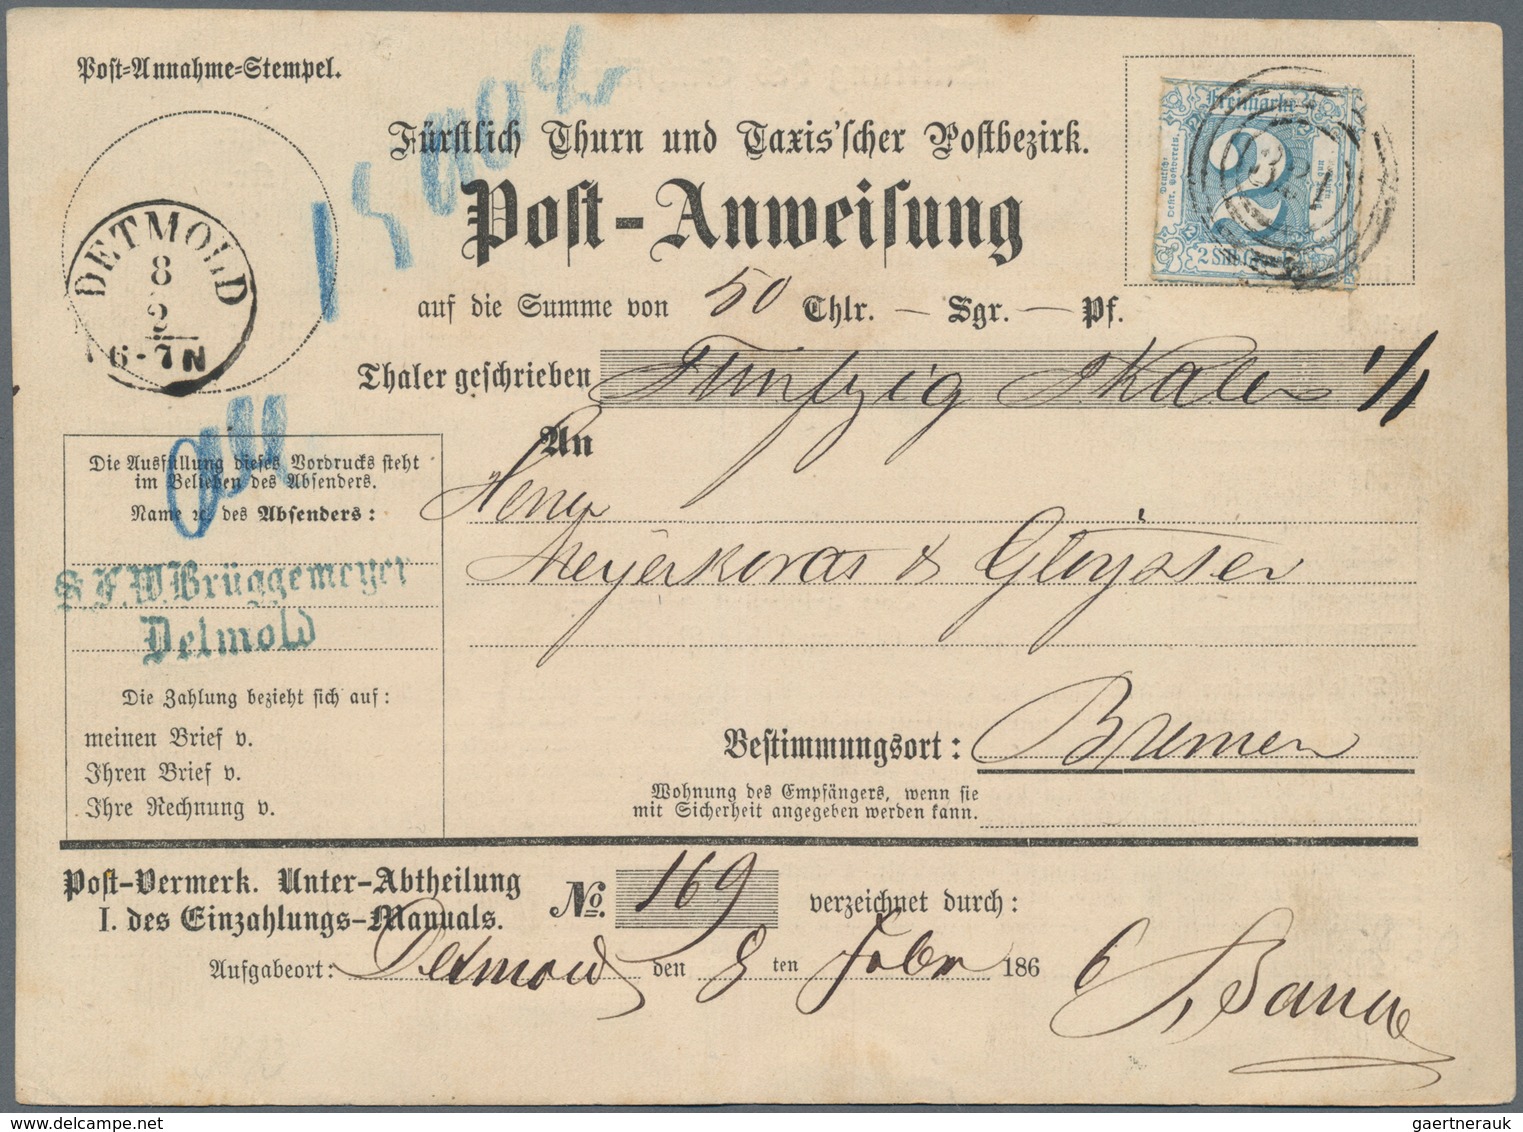 Post-Annahme-Stempel.
Fürstlich Thurn und Taxis'scher Postbezirk.
Post-Anweisung
Freimarke
2
2 Silb. Gr.
DETMOLD
8
2
6-7N
auf die Summe von 50 Thlr. — Sgr. — Pf.
Thaler geschrieben Funfzig Thaler
An
Die Ausfüllung dieses Vordrucks steht
im Belieben des Absenders.
Name ꝛc. des Absenders:
Herrn
S.F.W. Brüggemeyer
Detmold
Die Zahlung bezieht sich auf:
meinen Brief v.
Ihren Brief v.
Ihre Rechnung v.
Bestimmungsort: Bremen
Wohnung des Empfängers, wenn sie
mit Sicherheit angegeben werden kann.
Post-Vermerk. Unter-Abtheilung
I. des Einzahlungs-Manuals.
No. 169 verzeichnet durch:
Aufgabeort: Detmold den 8 ten Febr 186 6
gaertnerauk